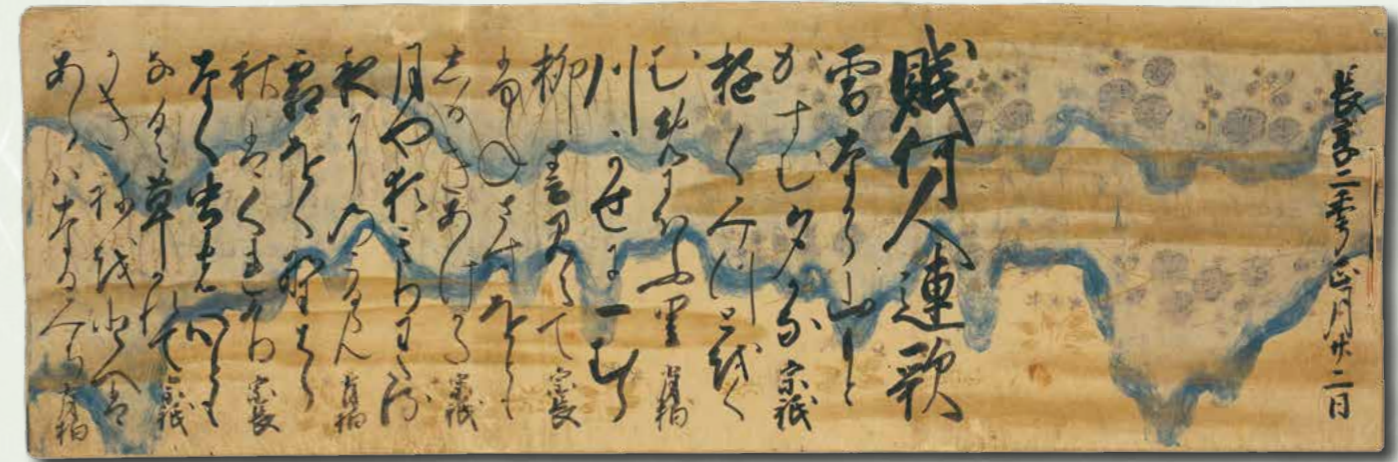 長享二年正月廿二日
賦何人連歌
雪なから山もと
かすむ夕かな 宗祇
ゆくみつとをく
むめにほふ里 肖柏
川かせに一むら
柳春見えて 宗長
ふねさすをとも
しるきあけかた 宗祇
月や猶きりわたる
夜にのこるらん 肖柏
霜をく野はら
秋はくれけり 宗長
なく虫の心とも
なく草かれて 宗祇
かきねをとへは
あらはなるみち 肖柏